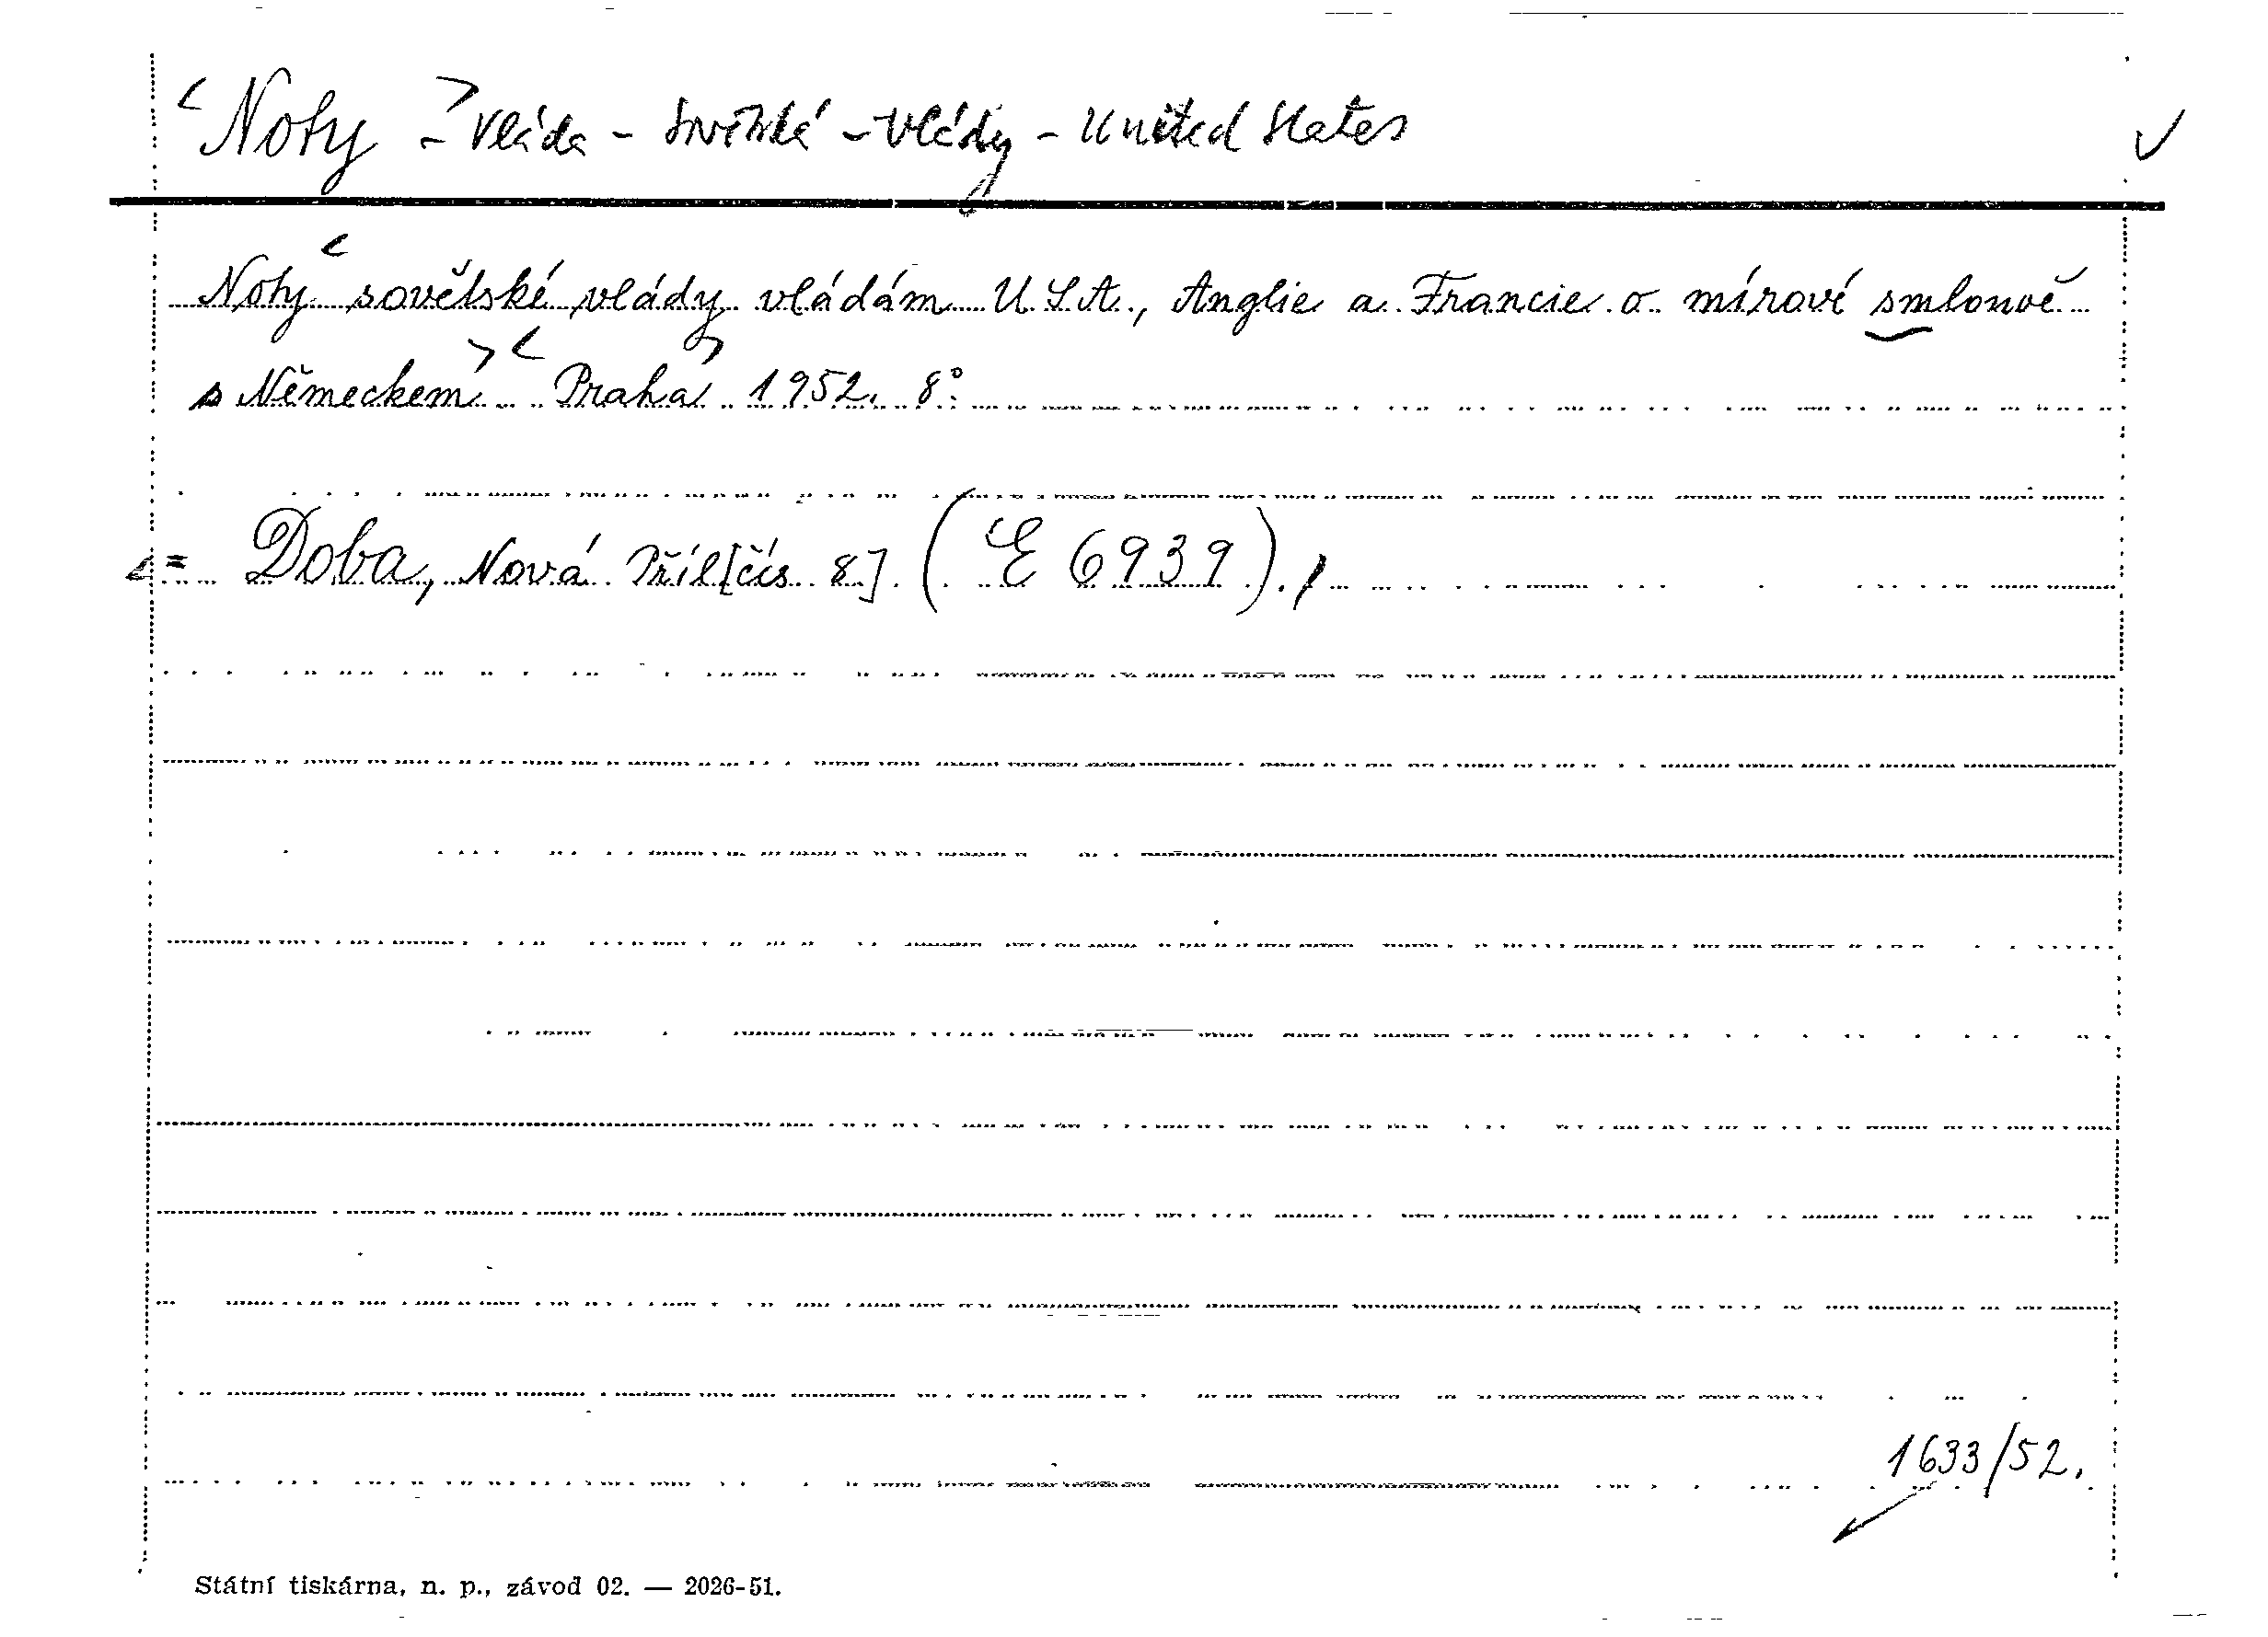 Noty - vláda - sovětská - vlády - United States
Noty sovětské vlády vládám U.S.A., Anglie a Francie o mírové smlouvě
s Německem Praha 1952. 8°.
= Doba, Nová Příl[čís 8]. (E 6939).
1633/52.
Státní tiskárna, n. p., závod 02. — 2026-51.